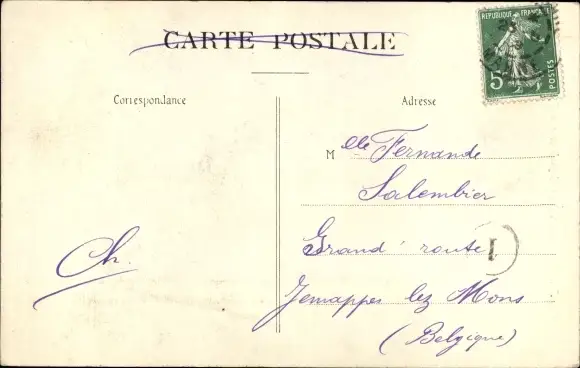 CARTE POSTALE
REPUBLIQUE FRANÇAISE
5c
POSTES
Correspondance
Adresse
Mlle Fernande
Salembier
Grand' route
1
Jemappes lez Mons
(Belgique)
Ch.